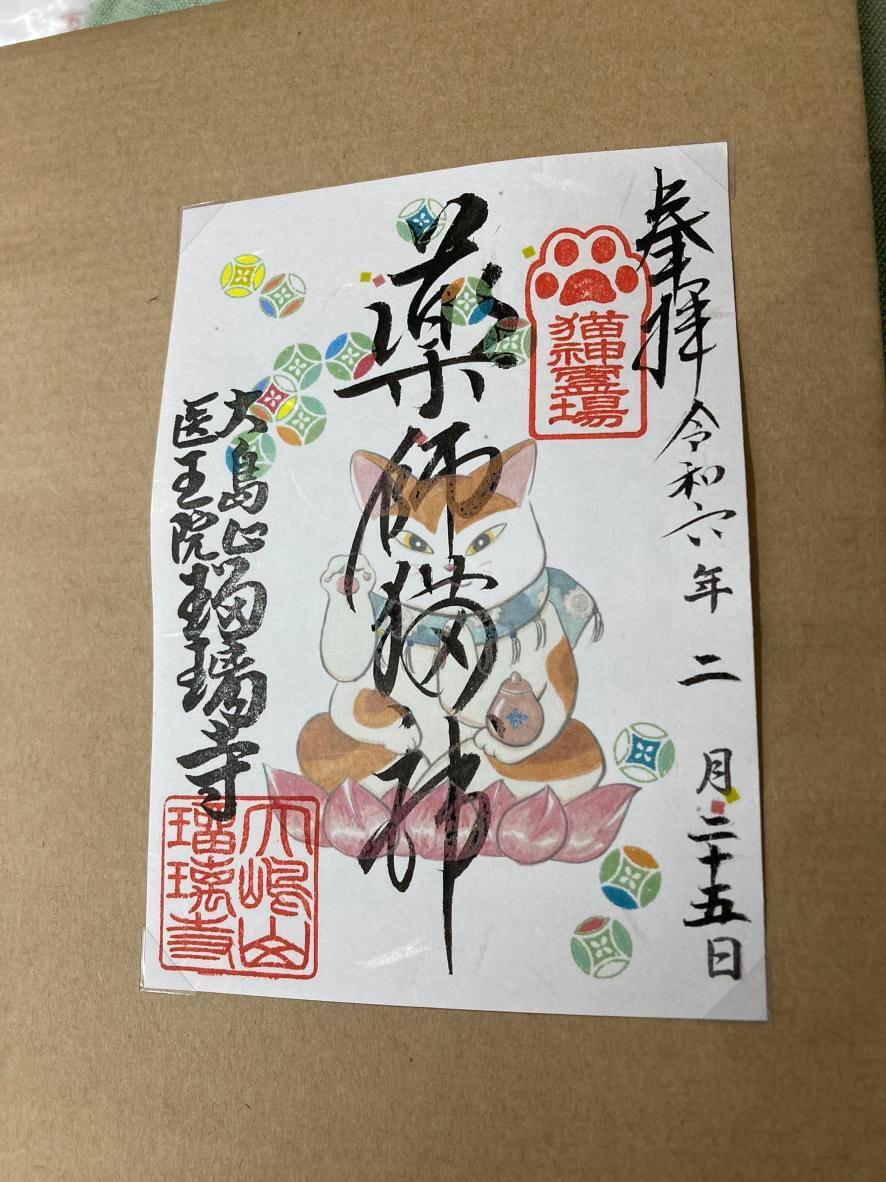 奉拝
令和六年二月二十五日
猫神霊場
薬師猫神
大島山瑠璃寺
医王院
大嶋山
瑠璃寺